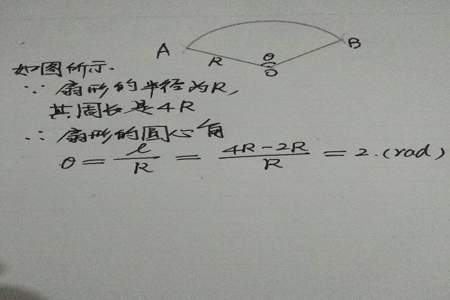 A
B
R
θ
O
如图所示.
∵ 扇形的半径为R,
其周长是4R
∴ 扇形的圆心角
θ = l/R = (4R-2R)/R = 2.(rad)